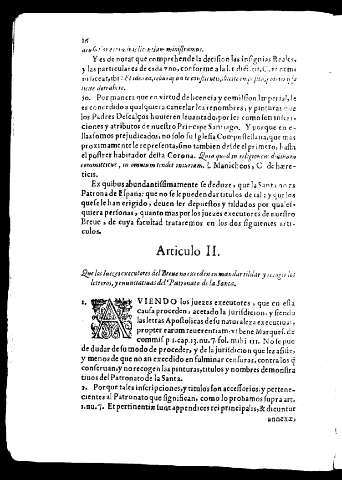 16
Y es de notar que comprehende la decision las insignias Reales,
y las particulares de cada vno, conforme a la l.
30. Por manera que en virtud de licencia y comission Imperial, le
es concedido a qualquiera cancelar los renombres, y pinturas que
los Padres Descalços houieren leuantado, por ser como son inscri-
ciones y atributos de nuestro Principe Santiago. Y porque en e-
llas somos prejudicados, no solo su Iglesia Compostellana, que mas
proximamente le representa, sino tambien desde el primero, hasta
el postrer habitador de la Corona. Quia quod in religionem diuinam
committitur, in omnium fertur iniuriam. l. Manicheos, C. de hære-
ticis.
Ex quibus abundantissimamente se deduze, que la Santa no es
Patrona de España: que no se le pueden dar titulos de tal: y que los
que se le han erigido, deuen ser depuestos y tildados por quales-
quiera personas, quanto mas por los juezes executores de nuestro
Breue, de cuya facultad trataremos en los dos siguientes arti-
culos.
Articulo II.
Que los Iuezes executores del Breue no exceden en mandar tildar y recoger los
letreros, y enunciatiuas del Patronato de la Santa.
1. AVIENDO los juezes executores, que en esta
causa proceden, acetado la jurisdicion, y siendo
las letras Apostolicas de su naturaleza executiuas,
propter earum reuerentiam, vt bene Marques, de
commiss. p. 1. cap. 13. nu. 7. fol. mihi 111. No se pue
de dudar de su modo de proceder, y de la jurisdicion que les assiste,
y menos de que no an excedido en fulminar censuras, contra los q̃
conseruan, y no recogen las pinturas, titulos y nombres demonstra
tiuos del Patronato de la Santa.
2. Porque tales inscripciones, y titulos son accessorios, y pertene-
cientes al Patronato que significan, como lo probamos supra art.
1. nu. 7. Et pertinentiæ sunt appendices rei principalis, & dicuntur
annexæ,